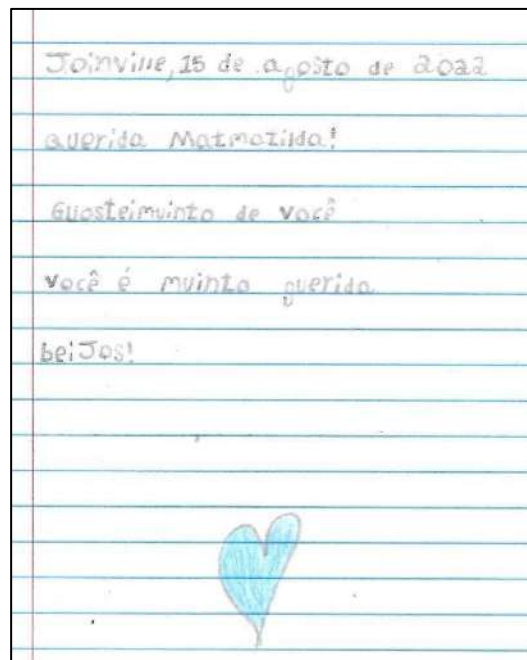 Joinville, 15 de agosto de 2022
querida Matmatilda!
Guosteimuinto de você
você é muinto querida
beiJos!